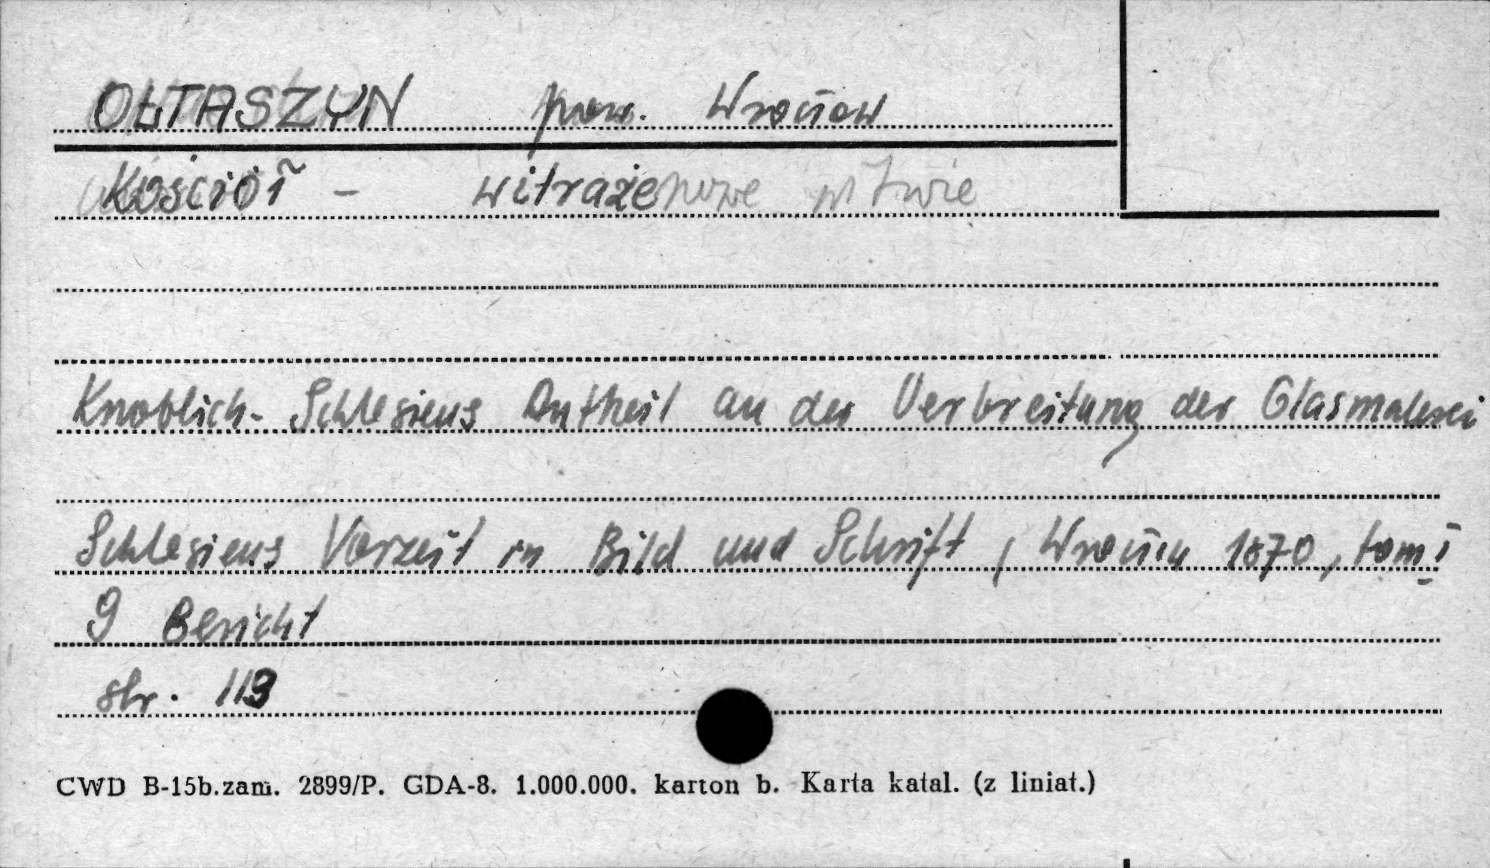 OŁTASZYN pow. Wrocław
Kościół - witraże
Knoblich- Schlesiens Antheil an der Verbreitung der Glasmalerei
Schlesiens Vorzeit in Bild und Schrift, Wrocław 1870, tom I
9 Bericht
str. 113
CWD B-15b.zam. 2899/P. GDA-8. 1.000.000. karton b. Karta katal. (z liniat.)